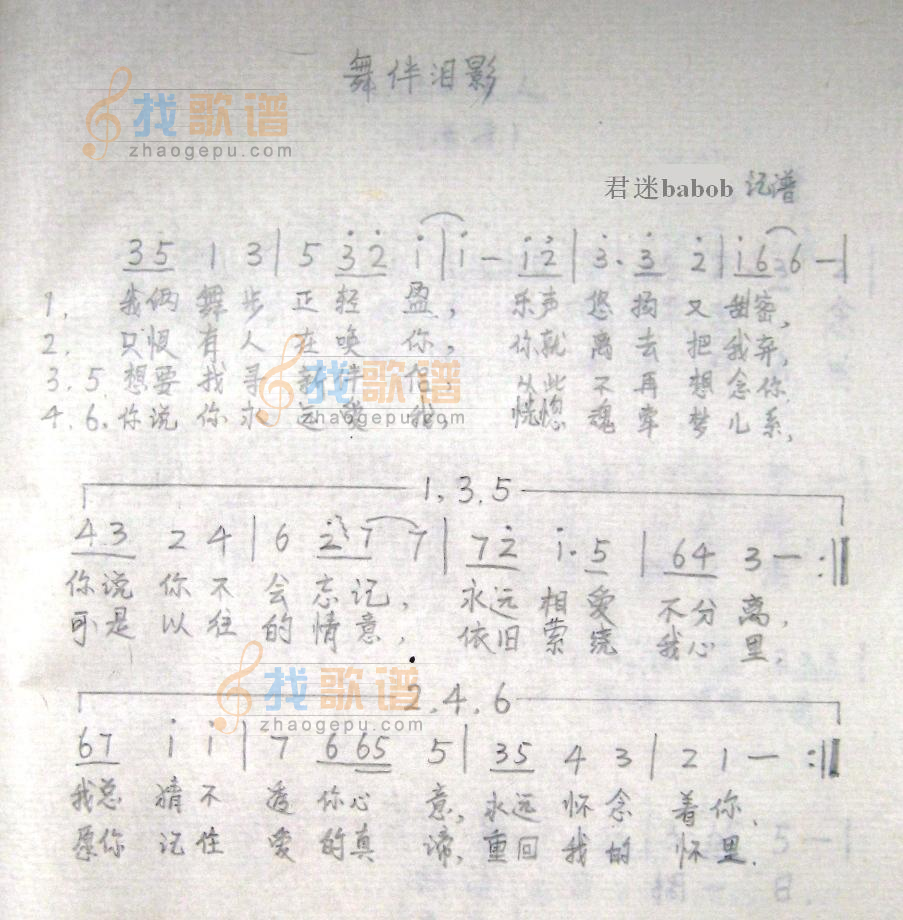 舞伴泪影
找歌谱
zhaogepu.com
君迷babob 记谱
35 1 3 | 5 3̇2̇ i | i — i2̇ | 3̇· 3̇ 2̇ | i6 6 — |
1. 我俩舞步正轻盈，乐声悠扬又甜密，
2. 只恨有人在唤你，你就离去把我弃，
3.5 想要找寻新伴侣，从此不再想念你，
4.6. 你说你永远爱我，恍惚魂牵梦儿系，
1.3.5
43 2 4 | 6 2̇7 7 | 72̇ i· 5 | 64 3 — :‖
你说你不会忘记，永远相爱不分离，
可是以往的情意，依旧萦绕我心里，
找歌谱
zhaogepu.com
2.4.6
67 i i | 7 665 5 | 35 4 3 | 2 1 — :‖
我总猜不透你心意，永远怀念着你、
愿你记住爱的真谛，重回我的怀里.